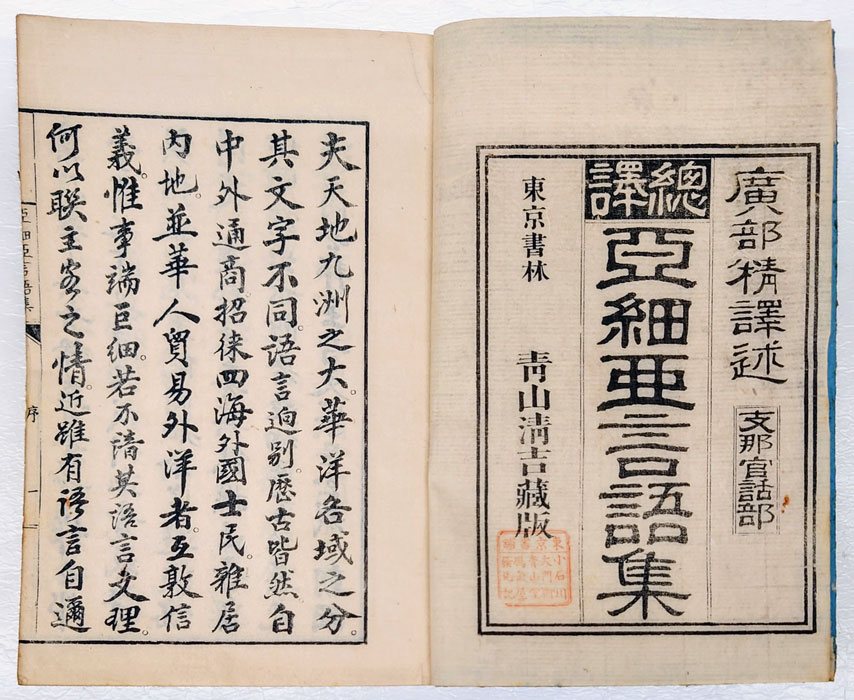 廣部精譯述
支那官話部
總譯
亞細亜言語集
東京書林 青山清吉藏版
夫天地九洲之大。華洋各域之分。
其文字不同。語言迥别。歷古皆然。自
中外通商。招徠四海外國士民。雜居
内地。並華人貿易外洋者。互敦信
義。惟事端巨細。若不諳其語言文理。
何以聯主客之情。近雖有語言自邇
亞細亞言語集 序 一